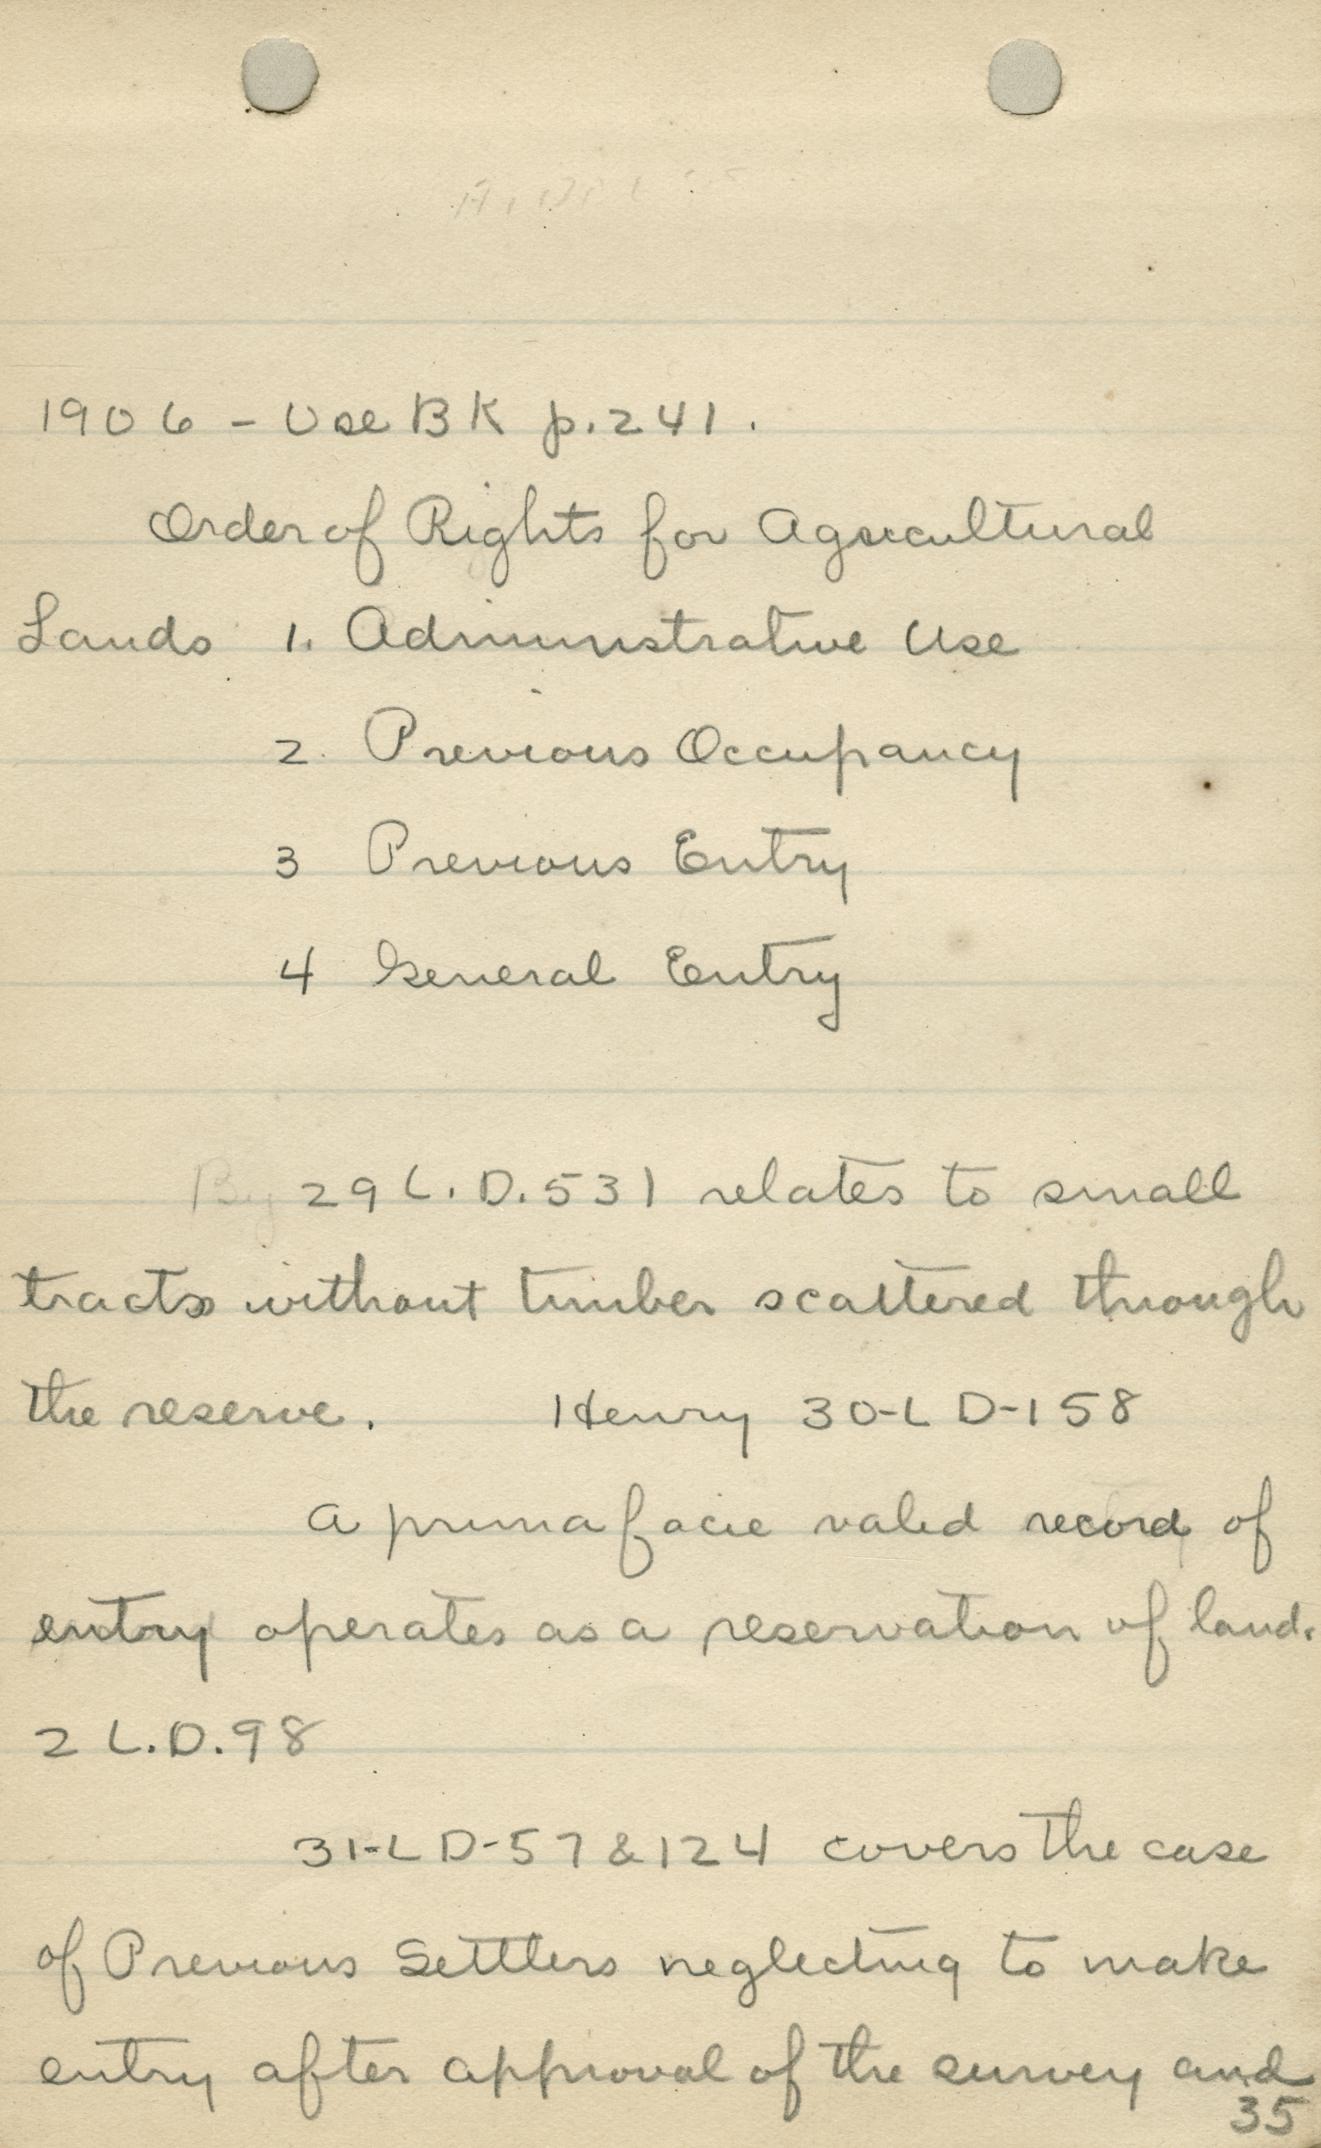 1906 - Use BK p.241.
Order of Rights for Agricultural
Lands 1. Administrative Use
2. Previous Occupancy
3 Previous Entry
4 General Entry
By 29 L.D.531 relates to small
tracts without timber scattered through
the reserve. Henry 30-LD-158
A prima facie valid record of
entry operates as a reservation of land.
2 L.D.98
31-LD-57 & 124 covers the case
of Previous Settlers neglecting to make
entry after approval of the survey and
35